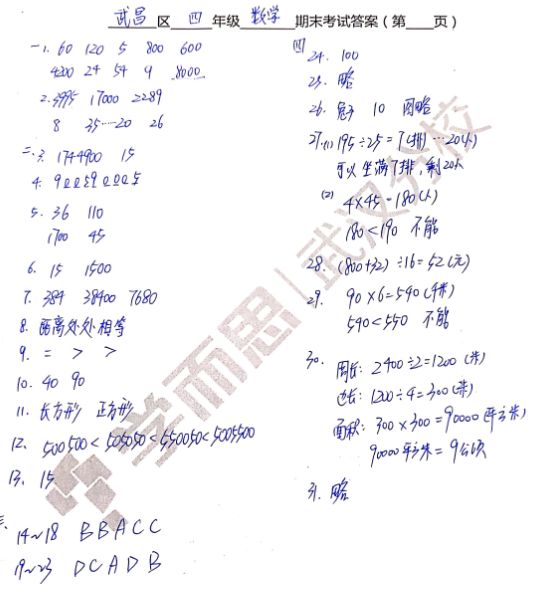 武昌 区 四 年级 数学 期末考试答案（第 页）
一1. 60 120 5 800 600
4200 24 54 9 8000
2. 5995 17000 2289
8 35……20 26
二、3. 1744900 15
5. 36 110
1700 45
6. 15 1500
7. 384 38400 7680
8. 距离处处相等
9. = > >
10. 40 90
11. 长方形 正方形
12. 500500<505050<550050<5005500
13. 15
三、
14~18 B B A C C
19~23 D C A D B
四
24. 100
25. 略
26. 10 图略
27.(1) 195÷25=7(排)…20(人)
可以坐满7排，剩20人
(2) 4×45=180(人)
180<190 不能
28. (800+32)÷16=52(元)
29. 90×6=540(千米)
540<550 不能
30. 周长: 2400÷2=1200(米)
边长: 1200÷4=300(米)
面积: 300×300=90000(平方米)
90000平方米=9公顷
31. 略
学而思 武汉分校